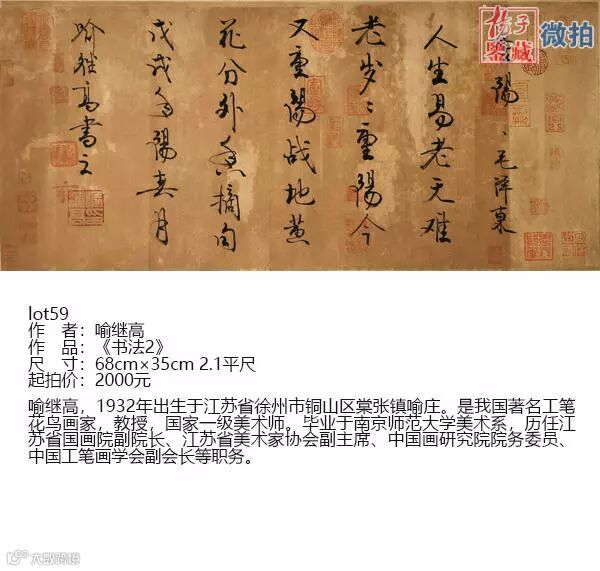 扬子
鉴藏
微拍
陽、毛泽東
人生易老天难
老岁々重陽今
又重陽战地黄
花分外香摘句
戊戌陽春月
喻继高書之
lot59
作 者：喻继高
作 品：《书法2》
尺 寸：68cm×35cm 2.1平尺
起拍价：2000元
喻继高，1932年出生于江苏省徐州市铜山区棠张镇喻庄。是我国著名工笔
花鸟画家，教授，国家一级美术师。毕业于南京师范大学美术系，历任江
苏省国画院副院长、江苏省美术家协会副主席、中国画研究院院务委员、
中国工笔画学会副会长等职务。
大数跨境